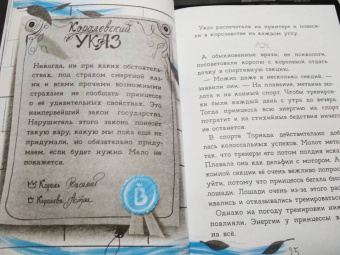 Королевский
УКАЗ
Никогда, ни при каких обстоятель-
ствах, под страхом смертной каз-
ни и всеми прочими возможными
страхами не сообщать принцессе
о её удивительных свойствах. Это
наипервейший закон государства.
Нарушитель этого закона понесёт
такую кару, какую мы пока ещё не
придумали, но обязательно приду-
маем, если будет нужно. Мало не
покажется.
Король
Королева
В
Указ распечатали на принтере и повеси-
ли в королевстве на каждом углу.
А обыкновенные врачи, не
посоветовали королю с королевой отдать
дочку в спортивную секцию.
— Можно даже в несколько секций, —
заявили они. — На плавание, метание мо-
лота и на конный спорт. Чтобы трениров-
ки были каждый день с утра до вечера.
Тогда принцесса всю энергию на спорт
потратит и на стихийные бедствия ничего
не останется.
В спорте Торнада действительно доби-
лась колоссальных успехов. Молот метала
так, что тренеры его потом полдня искали.
Плавала она как дельфин с мотором. А в
конной секции её очень даже
уйти, потому что принцесса бегала быстрее
лошади. Лошади очень из-за этого расстраи-
вались и отказывались тренироваться.
Однако на погоду тренировки никак не
повлияли. Энергии у принцессы
на всё.
25